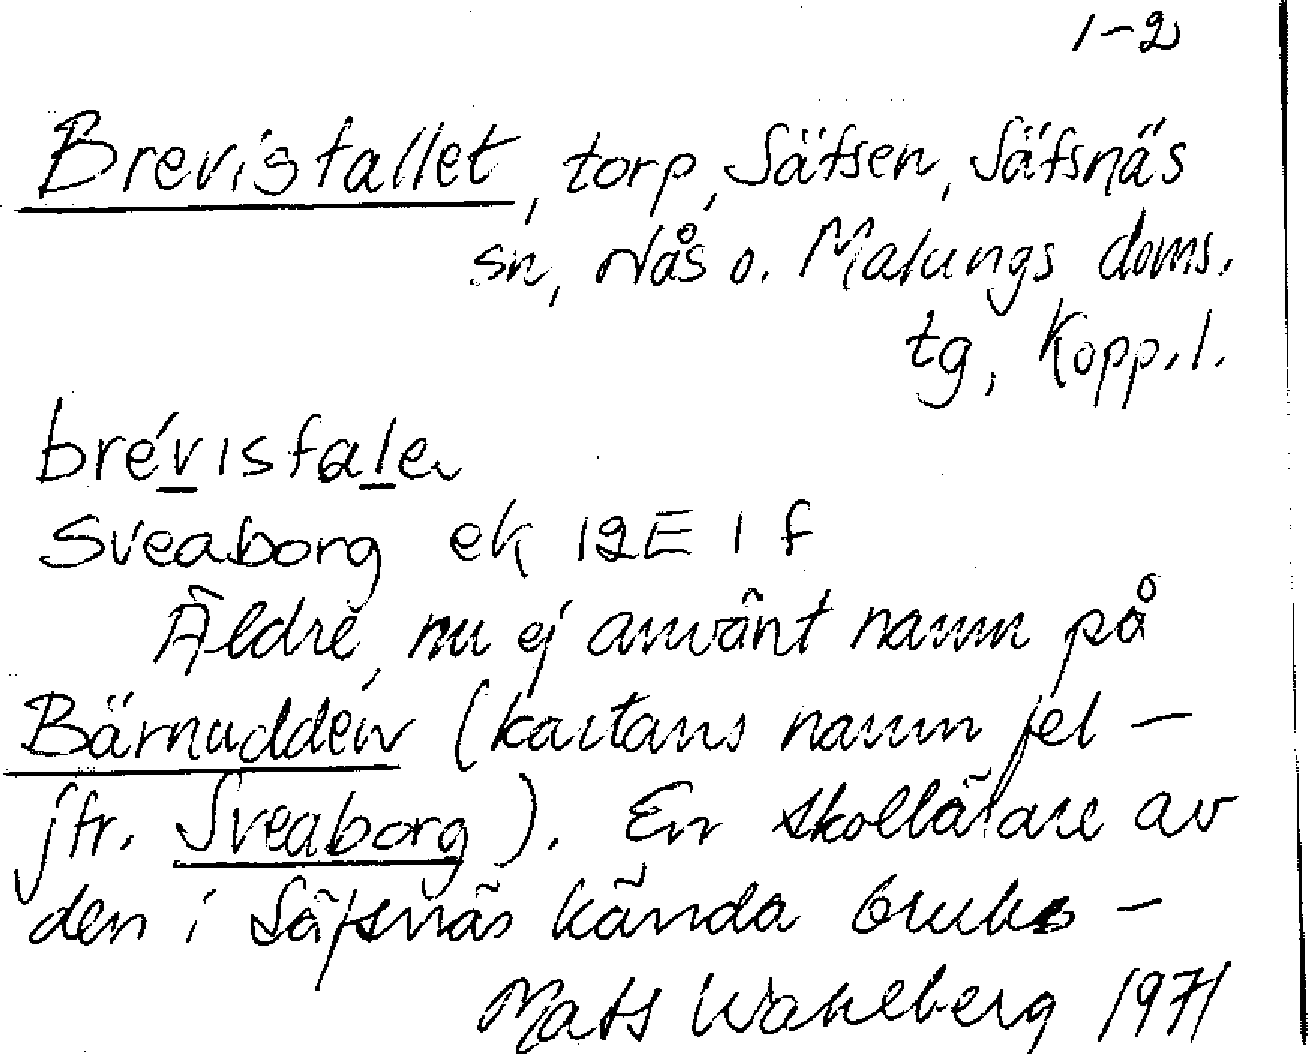 1-2
Brevisfallet, torp, Säfsen, Säfsnäs
sn, Nås o. Malungs doms.
tg, Kopp.l.
brévisfalen
Sveaborg ek 12E 1 f
Äldre, nu ej använt namn på
Bärnudden (kartans namn fel -
jfr. Sveaborg). En skollärare av
den i Säfsnäs kända bruks -
Mats Wahlberg 1971